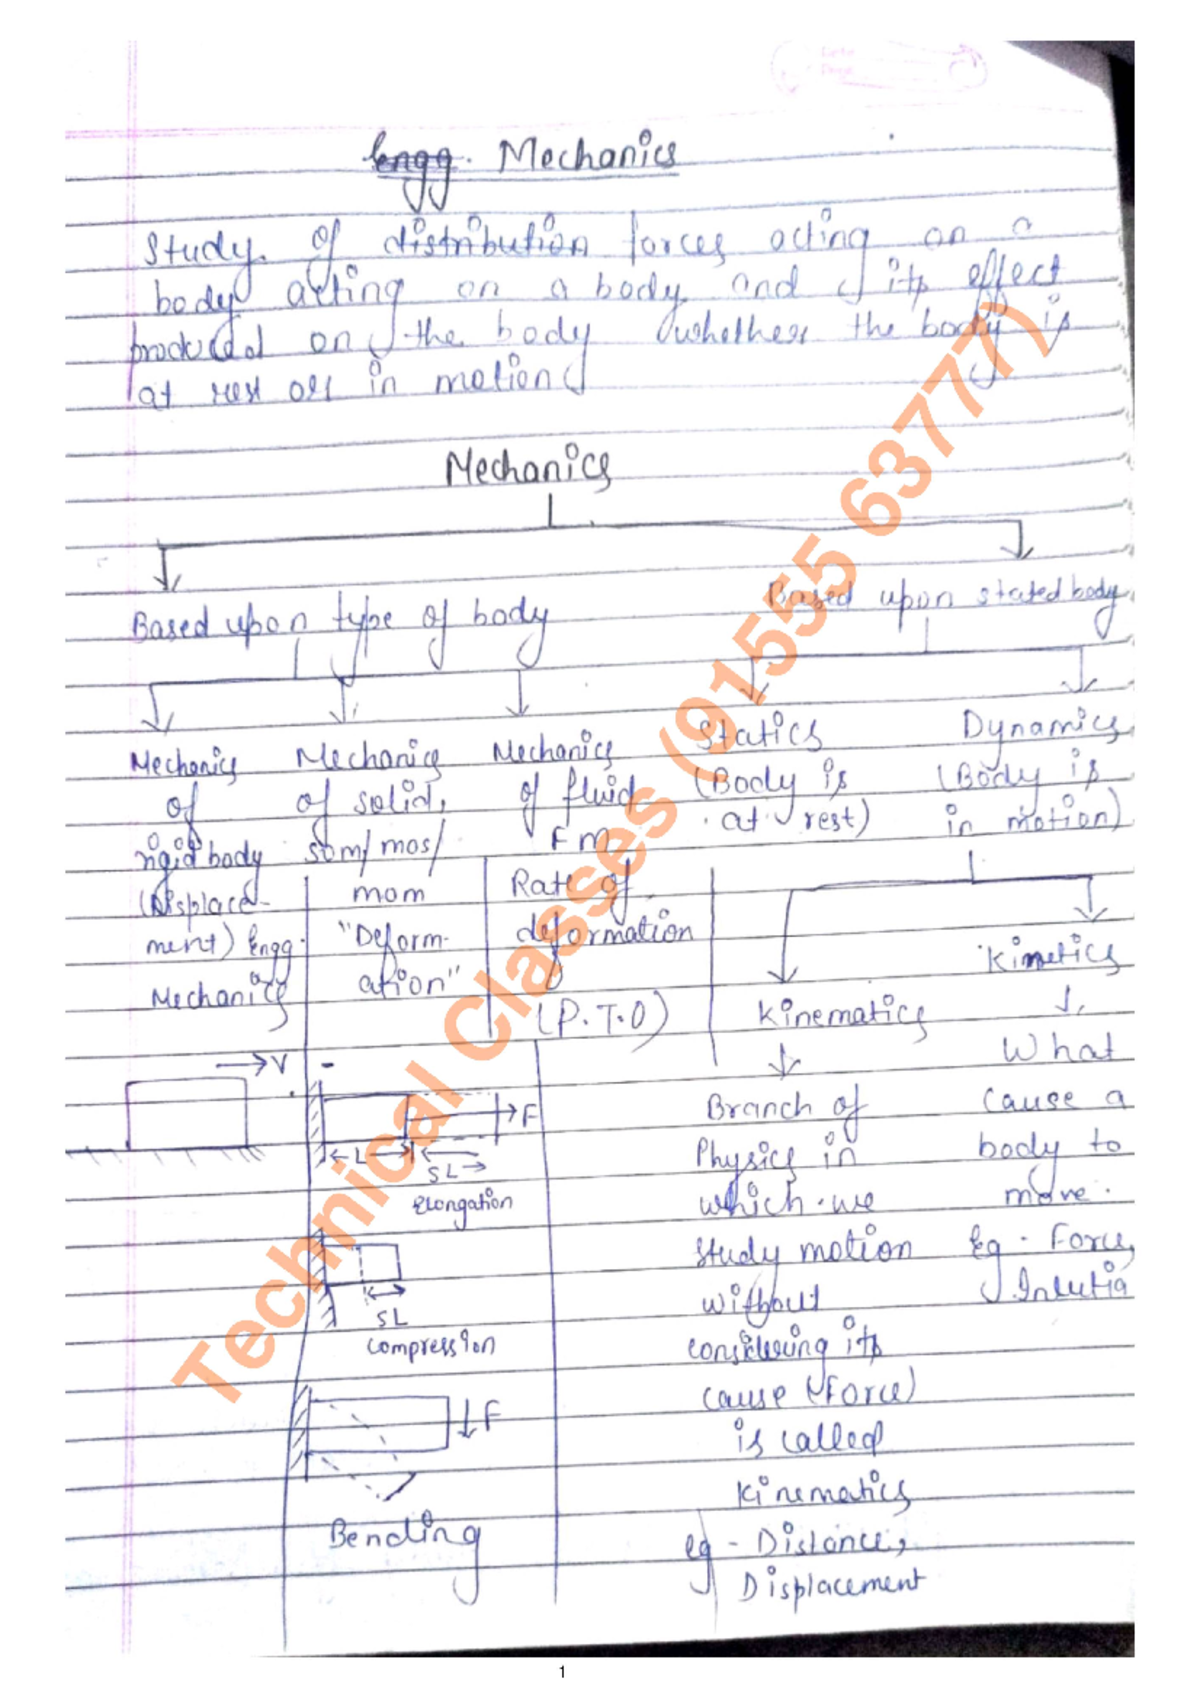 Engg. Mechanics
Study of distribution forces acting on a
body acting on a body and its effect
produced on the body (whether the body is
at rest or in motion)
Mechanics
Based upon type of body
Based upon stated body
Mechanics
of
rigid body
(Displace-
ment) Engg.
Mechanics
Mechanics
of solid,
som/mos/
mom
"Deform-
ation"
Mechanics
of fluid
FM
Rate of
deformation
(P.T.O)
Statics
(Body is
at rest)
Dynamics
(Body is
in motion)
Kinematics
Branch of
Physics in
which we
study motion
without
considering its
cause (Force)
is called
Kinematics
eg - Distance,
Displacement
Kinetics
What
cause a
body to
move.
Eg - Force,
V
F
L
SL
Elongation
SL
Compression
F
Bending
Technical Classes (9155 63777)
1